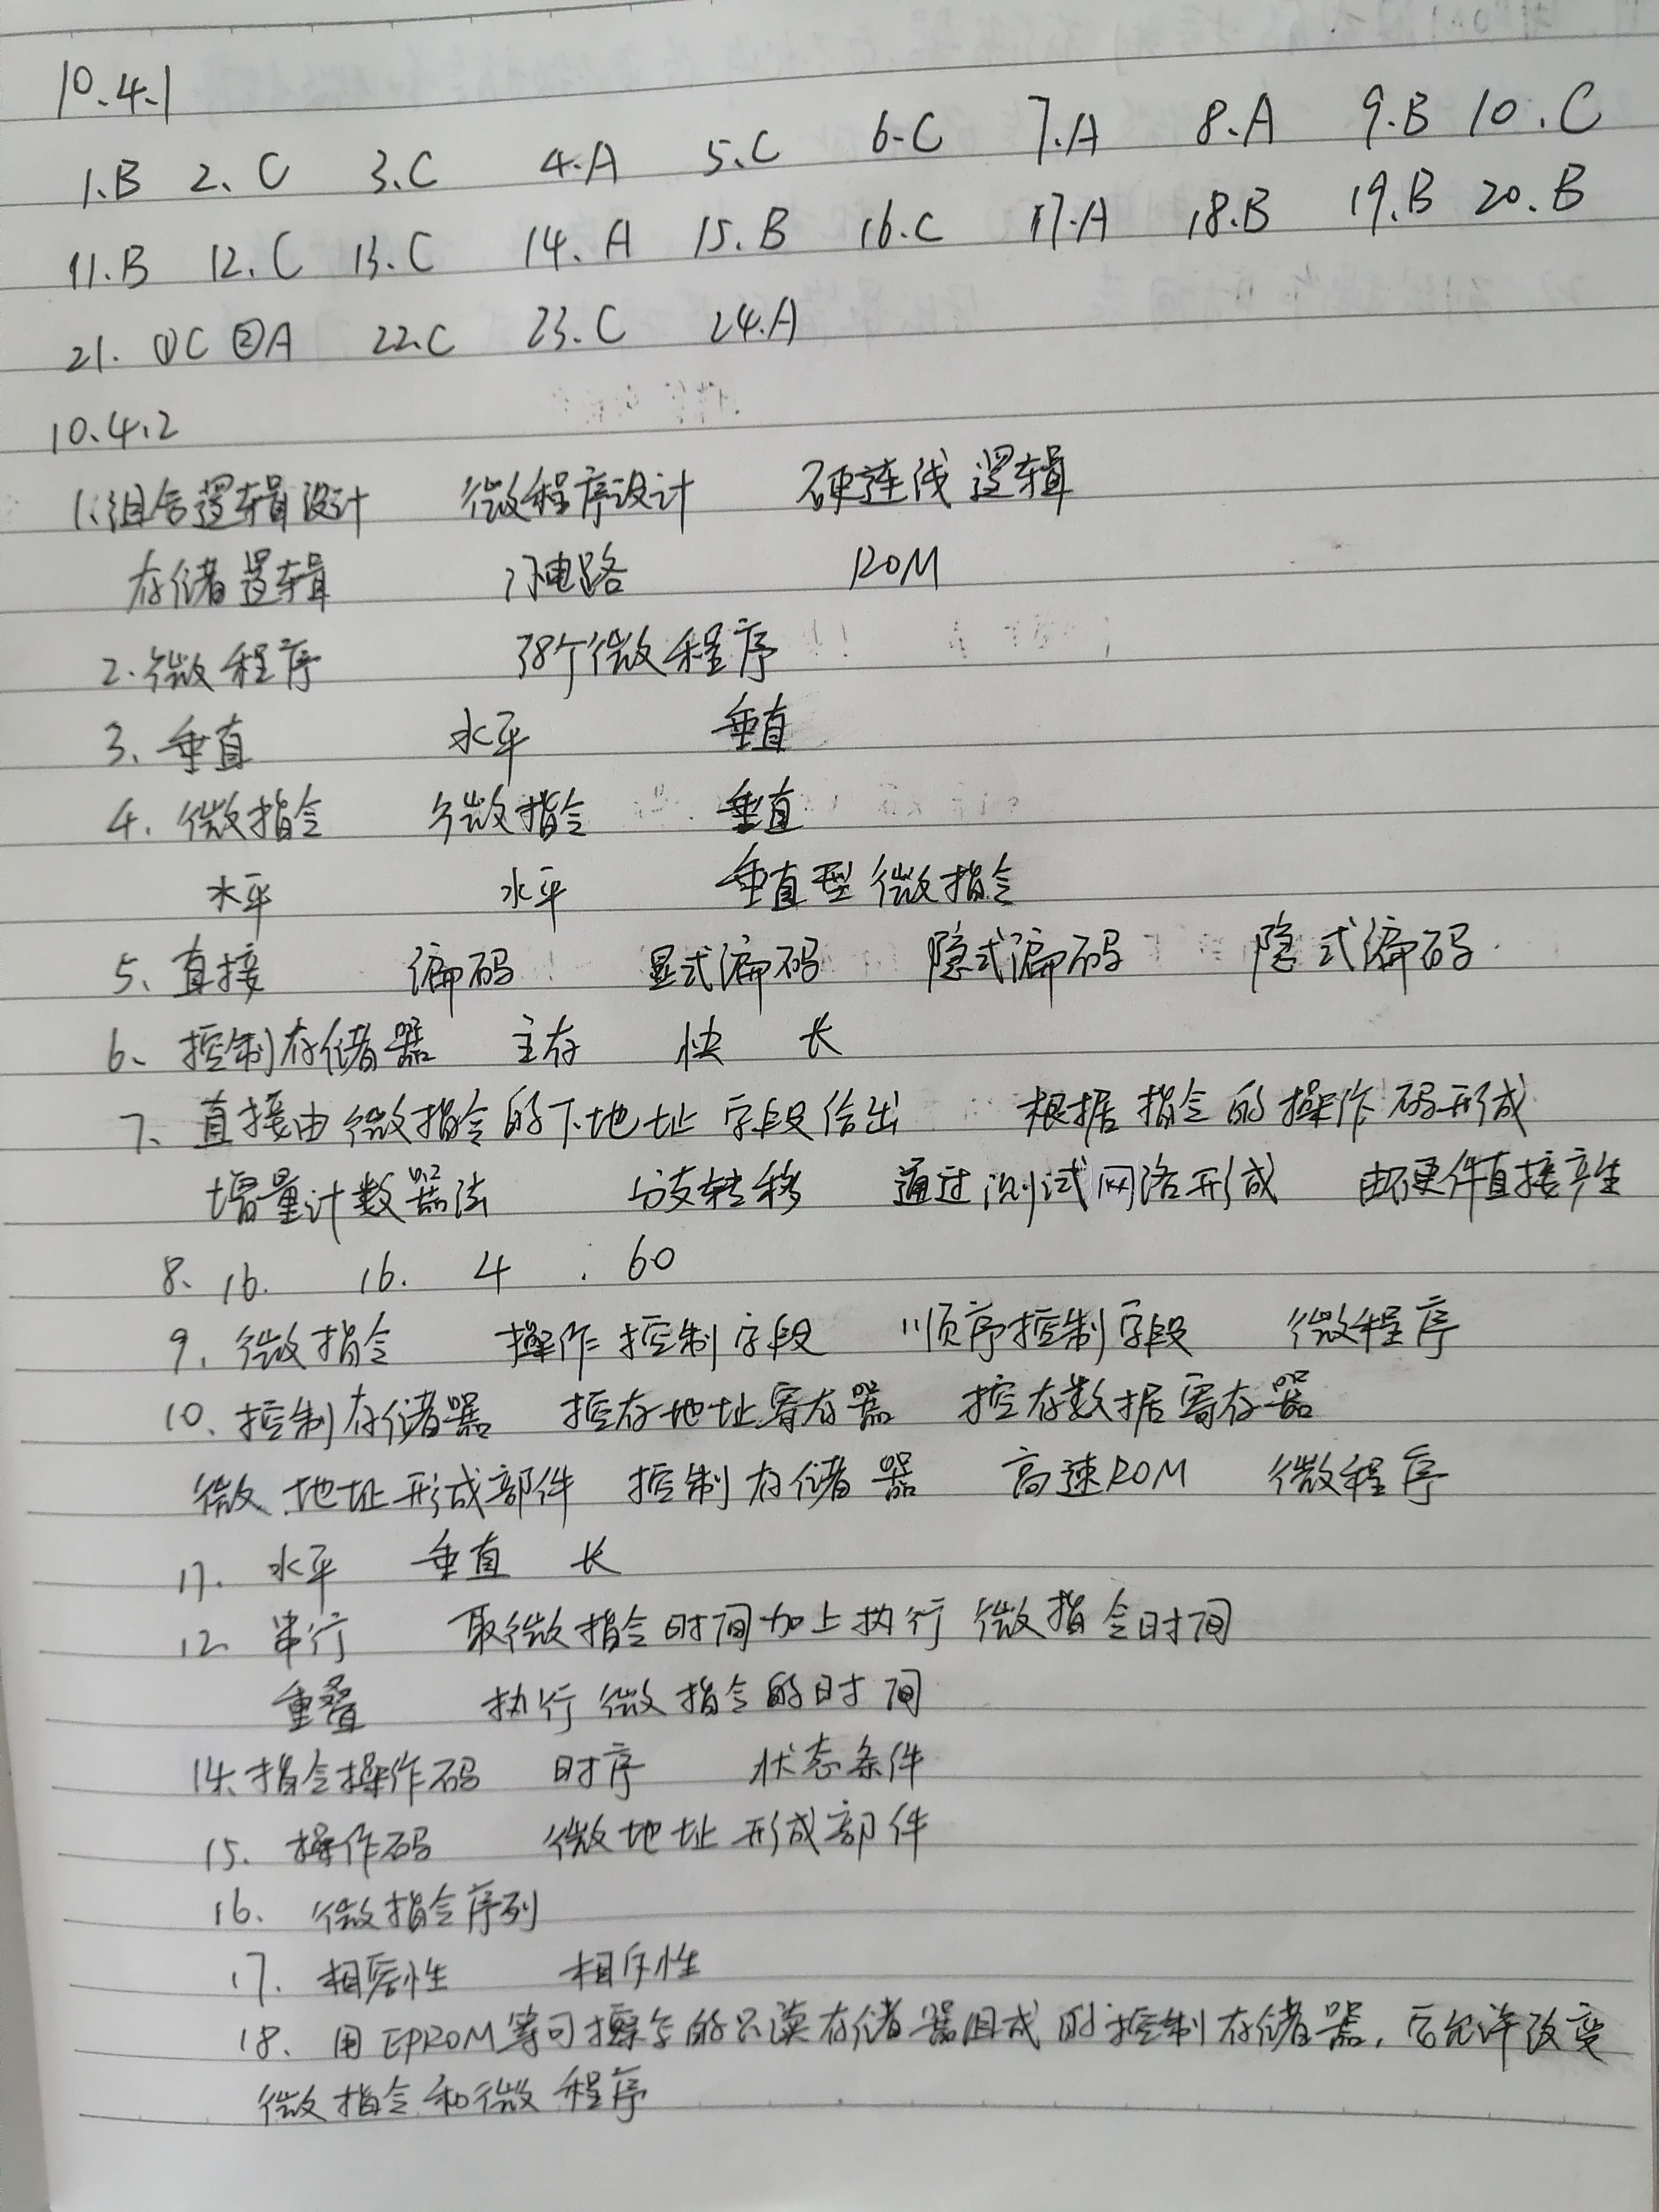 10.4.1
1.B 2.C 3.C 4.A 5.C 6.C 7.A 8.A 9.B 10.C
11.B 12.C 13.C 14.A 15.B 16.C 17.A 18.B 19.B 20.B
21.①C ②A 22.C 23.C 24.A
10.4.2
1.组合逻辑设计 微程序设计 硬连线逻辑
存储逻辑 门电路 ROM
2.微程序 38个微程序
3、垂直 水平 垂直
4.微指令 微指令 垂直
水平 水平 垂直型微指令
5、直接 编码 显式编码 隐式编码 隐式编码
6、控制存储器 主存 快 长
7、直接由微指令的下地址字段给出 根据指令的操作码形成
增量计数器法 分支转移 通过测试网络形成 由硬件直接产生
8、16. 16. 4 . 60
9.微指令 操作控制字段 顺序控制字段 微程序
10、控制存储器 控存地址寄存器 控存数据寄存器
微地址形成部件 控制存储器 高速ROM 微程序
11. 水平 垂直 长
12. 串行 取微指令时间加上执行微指令时间
重叠 执行微指令的时间
14.指令操作码 时序 状态条件
15. 操作码 微地址形成部件
16、微指令序列
17. 相容性 相斥性
18、用EPROM等可擦除的只读存储器组成的控制存储器,允许改变
微指令和微程序